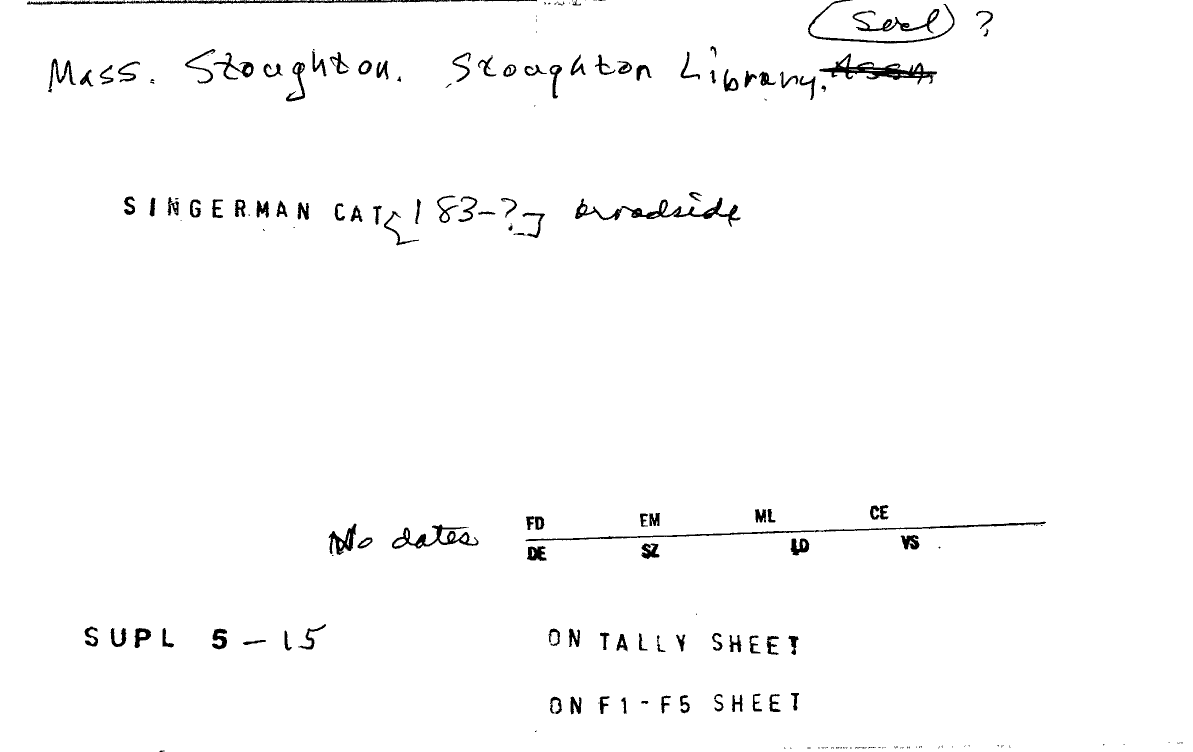 Socl ?
Mass. Stoughton. Stoughton Library. Assn.
SINGERMAN CAT [183-?] broadside
No dates FD EM ML CE
DE SZ LD VS
SUPL 5-15 ON TALLY SHEET
ON F1-F5 SHEET